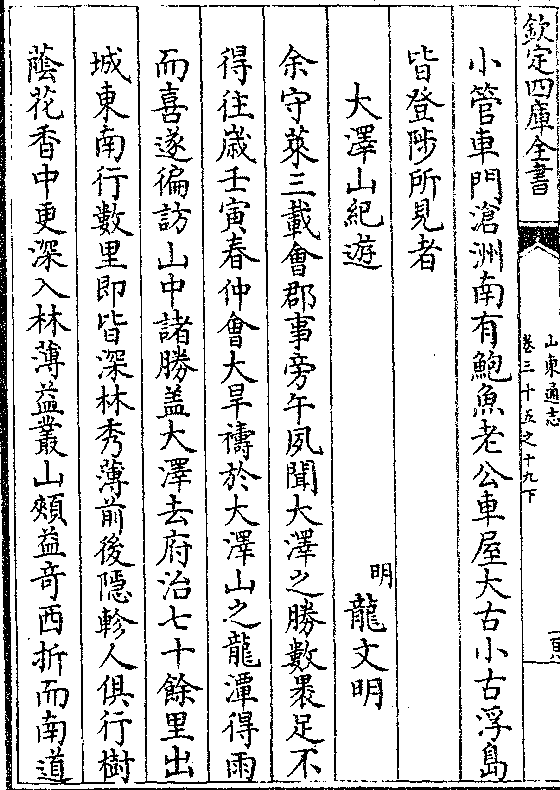 欽定四庫全書
山東通志
卷三十五之十九下
小管車門滄洲南有鮑魚老公車屋大古小古浮島
皆登陟所見者
大澤山紀遊
明龍文明
余守萊三載會郡事旁午夙聞大澤之勝數褁足不
得往歳壬寅春仲會大旱禱於大澤山之龍潭得雨
而喜遂徧訪山中諸勝盖大澤去府治七十餘里出
城東南行數里即皆深林秀薄前後隱軫人俱行樹
蔭花香中更深入林薄益叢山頰益奇西折而南道